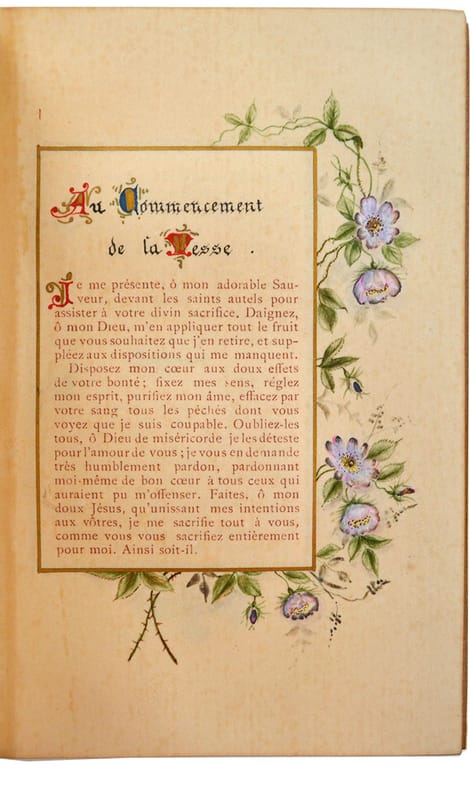 Au Commencement
de la Messe .
Je me présente, ô mon adorable Sau-
veur, devant les saints autels pour
assister à votre divin sacrifice. Daignez,
ô mon Dieu, m'en appliquer tout le fruit
que vous souhaitez que j'en retire, et sup-
pléez aux dispositions qui me manquent.
Disposez mon cœur aux doux effets
de votre bonté ; fixez mes sens, réglez
mon esprit, purifiez mon âme, effacez par
votre sang tous les péchés dont vous
voyez que je suis coupable. Oubliez-les
tous, ô Dieu de miséricorde je les déteste
pour l'amour de vous ; je vous en demande
très humblement pardon, pardonnant
moi-même de bon cœur à tous ceux qui
auraient pu m'offenser. Faites, ô mon
doux Jésus, qu'unissant mes intentions
aux vôtres, je me sacrifie tout à vous,
comme vous vous sacrifiez entièrement
pour moi. Ainsi soit-il.